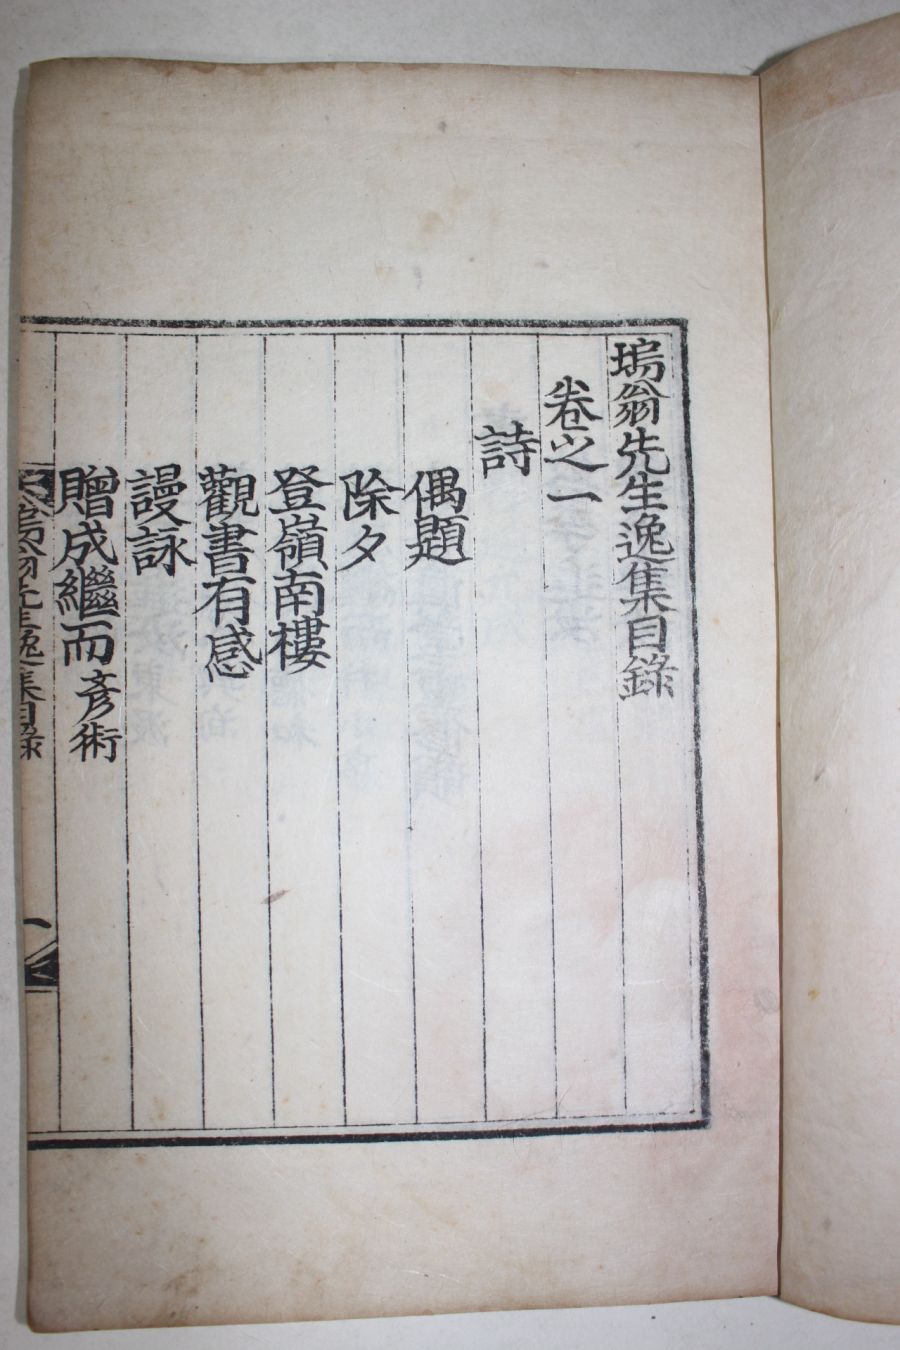 塢翁先生逸集目錄
卷之一
詩
偶題
除夕
登嶺南樓
觀書有感
謾詠
贈成繼而彦術
塢翁先生逸集目錄
一